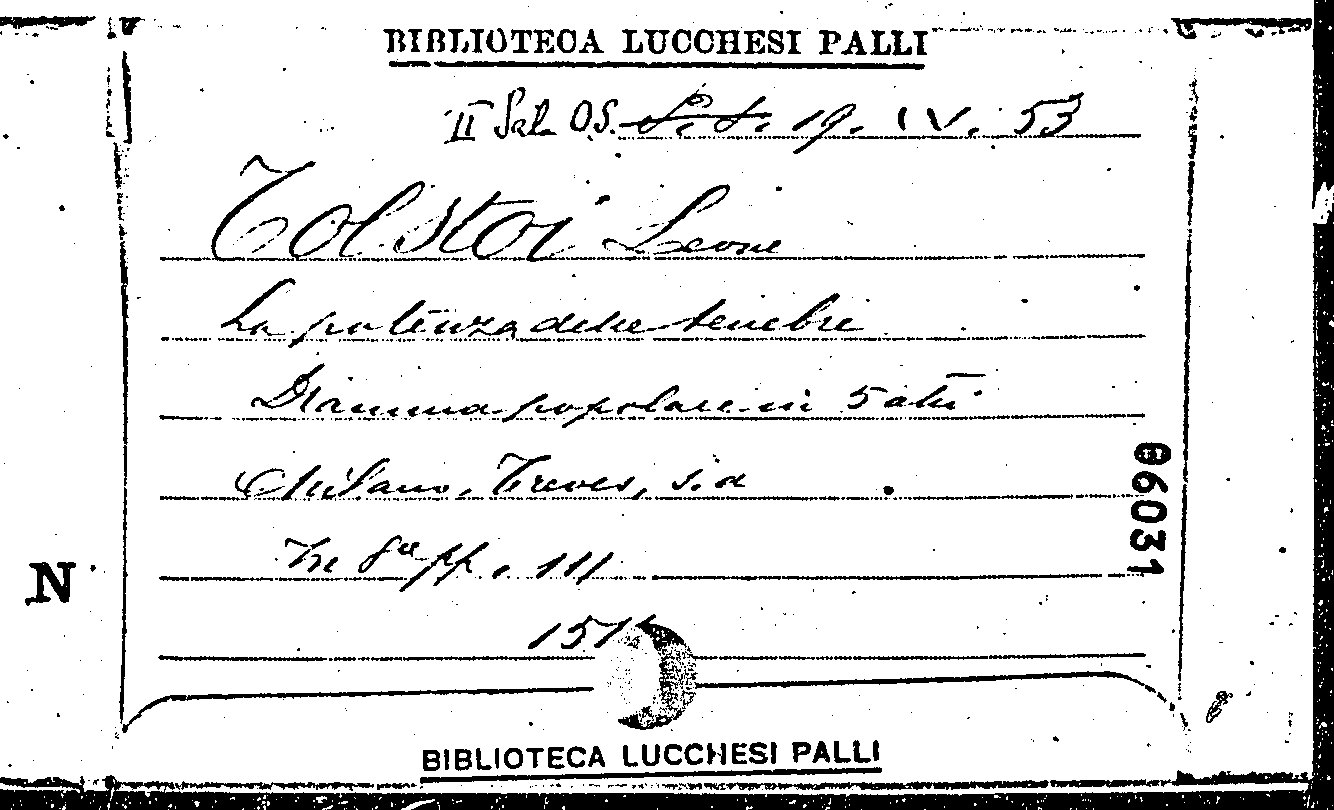 BIBLIOTECA LUCCHESI PALLI
II Sal. O.S. S. S. 19. IV. 53
Tolstoi Leone
La potenza delle tenebre
Dramma popolare in 5 atti
Milano, Treves, s.a
In 8° pp. 111
06031
N
BIBLIOTECA LUCCHESI PALLI